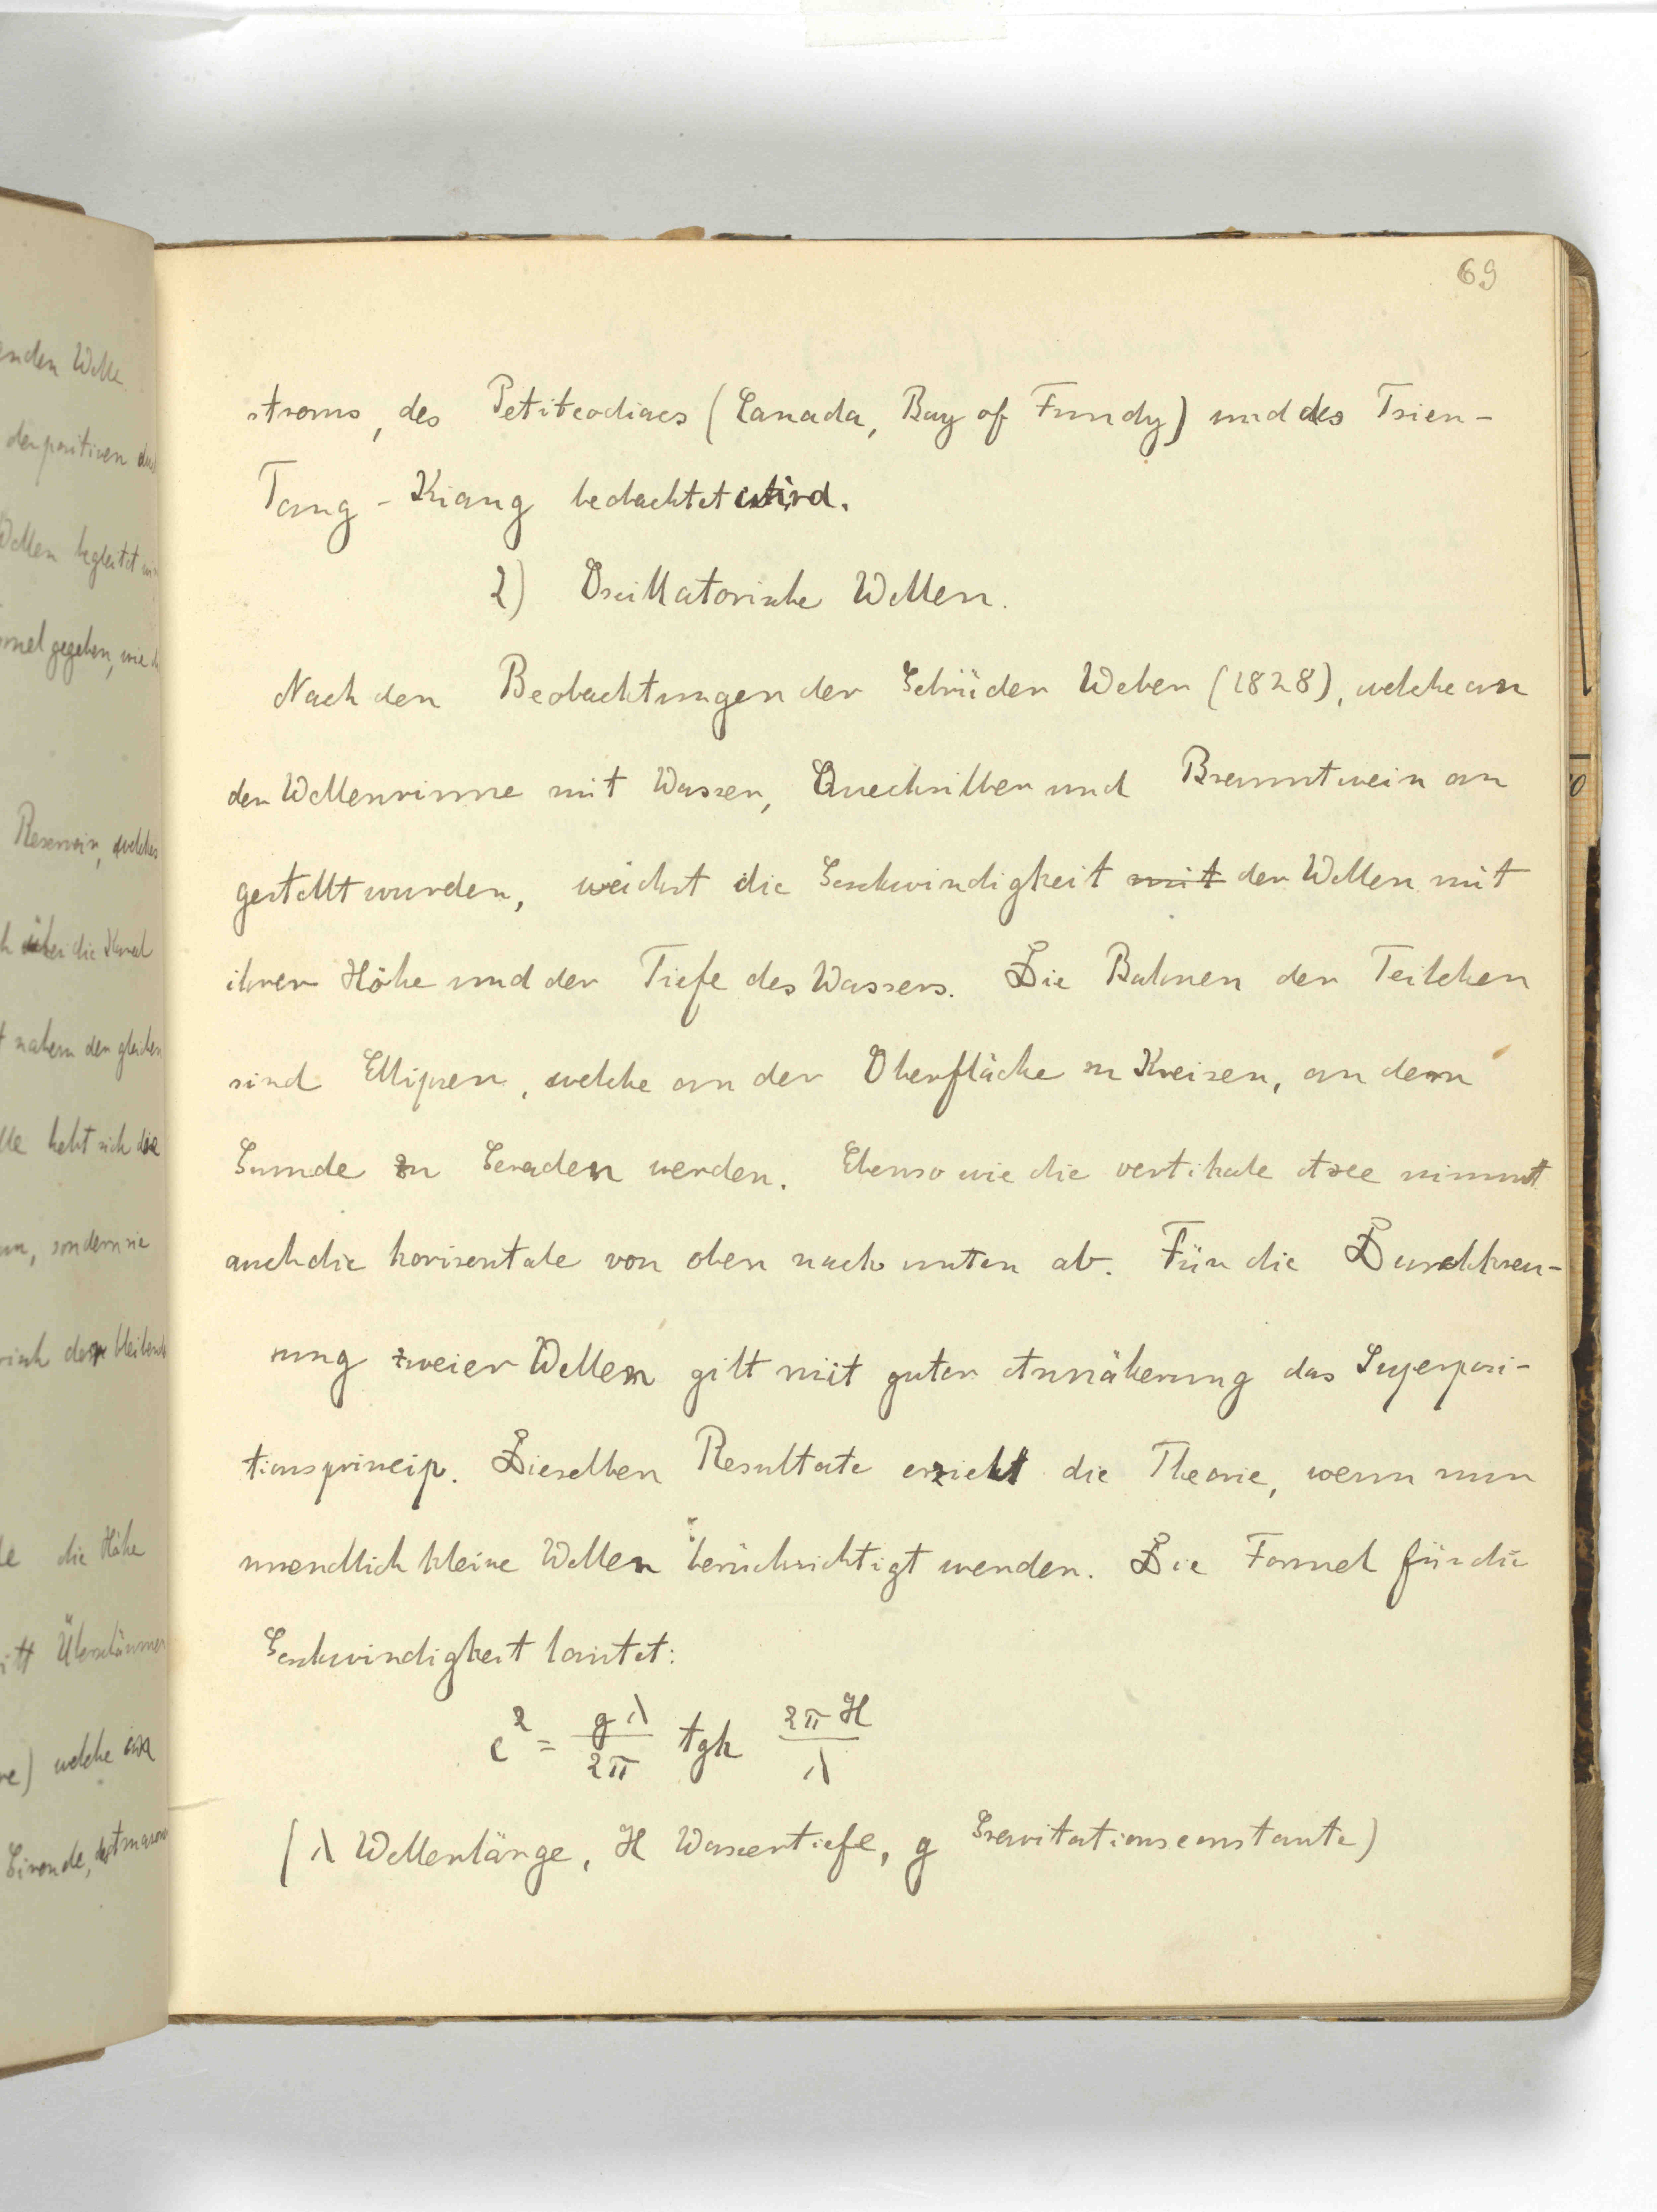 69
stroms, des Petitcodiacs (Canada, Bay of Fundy) und des Tsien-
Tang-Kiang beobachtet wird.
2) Oscillatorische Wellen.
Nach den Beobachtungen der Gebrüder Weber (1828), welche an
der Wellenrinne mit Wasser, Quecksilber und Branntwein an
gestellt wurden, wächst die Geschwindigkeit mit der Wellen mit
ihrer Höhe und der Tiefe des Wassers. Die Bahnen der Teilchen
sind Ellipsen, welche an der Oberfläche zu Kreisen, an dem
Grunde zu Geraden werden. Ebenso wie die vertikale Axe nimmt
auch die horizontale von oben nach unten ab. Für die Durchkreu-
zung zweier Wellen gilt mit guter Annäherung das Superposi-
tionsprincip. Dieselben Resultate erzielt die Theorie, wenn nun
unendlich kleine Wellen berücksichtigt werden. Die Formel für die
Geschwindigkeit lautet:
c² = gλ/2π tgh 2πH/λ
(λ Wellenlänge, H Wassertiefe, g Gravitationsconstante)
enden Welle.
der positiven
Wellen begleitet
gegeben, wie
Reservoir, welches
über die
nahezu den gleichen
hebt sich die
sondern sie
der bleibende
die Höhe
Überschäumen
welche